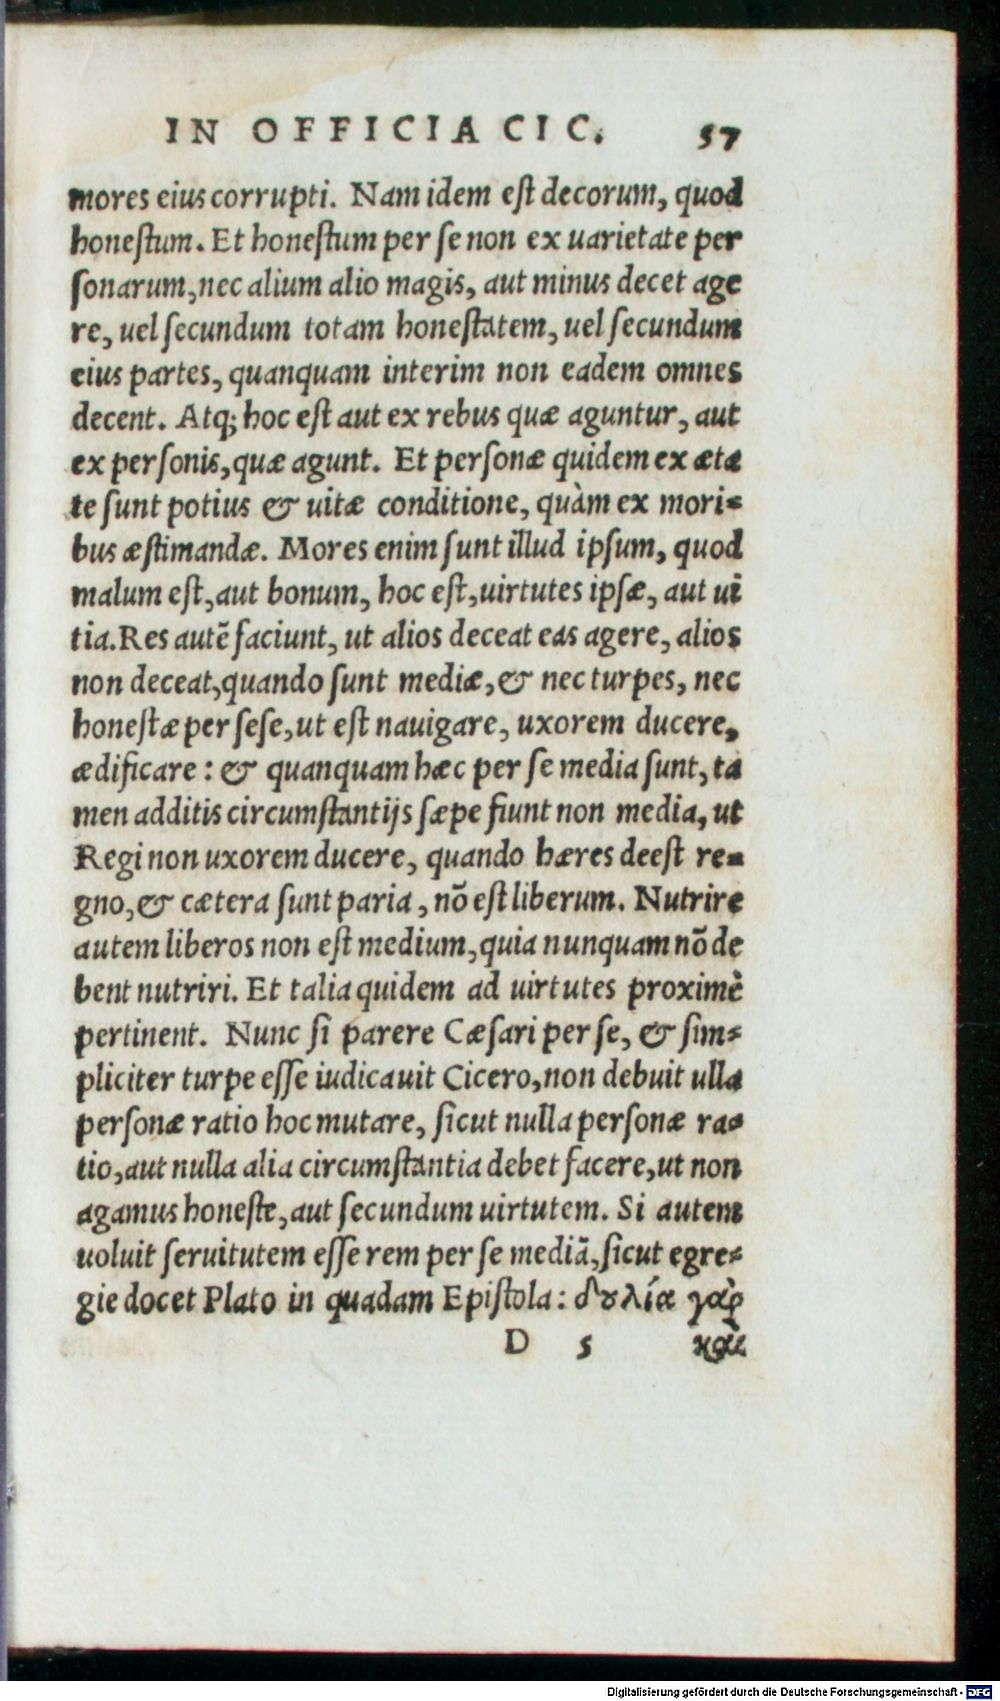 IN OFFICIA CIC. 57
mores eius corrupti. Nam idem eſt decorum, quod
honeſtum. Et honeſtum per ſe non ex uarietate per
ſonarum, nec alium alio magis, aut minus decet age
re, uel ſecundum totam honeſtatem, uel ſecundum
eius partes, quanquam interim non eadem omnes
decent. Atq; hoc eſt aut ex rebus quæ aguntur, aut
ex perſonis, quæ agunt. Et perſonæ quidem ex æta
te ſunt potius & uitæ conditione, quàm ex mori⸗
bus æſtimandæ. Mores enim ſunt illud ipſum, quod
malum eſt, aut bonum, hoc eſt, uirtutes ipſæ, aut ui
tia. Res autē faciunt, ut alios deceat eas agere, alios
non deceat, quando ſunt mediæ, & nec turpes, nec
honeſtæ per ſeſe, ut eſt nauigare, uxorem ducere,
ædificare: & quanquam hæc per ſe media ſunt, ta
men additis circumſtantijs ſæpe fiunt non media, ut
Regi non uxorem ducere, quando hæres deeſt re⸗
gno, & cætera ſunt paria, nō eſt liberum. Nutrire
autem liberos non eſt medium, quia nunquam nō de
bent nutriri. Et talia quidem ad uirtutes proximè
pertinent. Nunc ſi parere Cæſari per ſe, & ſim⸗
pliciter turpe eſſe iudicauit Cicero, non debuit ulla
perſonæ ratio hoc mutare, ſicut nulla perſonæ ra⸗
tio, aut nulla alia circumſtantia debet facere, ut non
agamus honeſte, aut ſecundum uirtutem. Si autem
uoluit ſeruitutem eſſe rem per ſe mediā, ſicut egre⸗
gie docet Plato in quadam Epiſtola: δȣλία γὰρ
D 5 καὶ
Digitalisierung gefördert durch die Deutsche Forschungsgemeinschaft - DFG